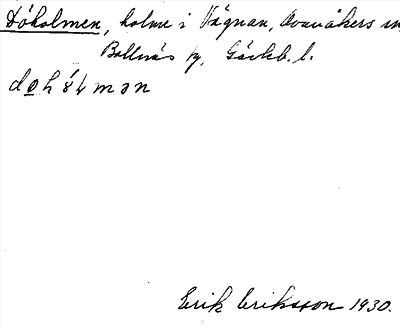 Dóholmen, holme i Vågnan, Ovanåkers sn,
Bollnäs tg, Gävleb. l.
Erik Eriksson 1930.